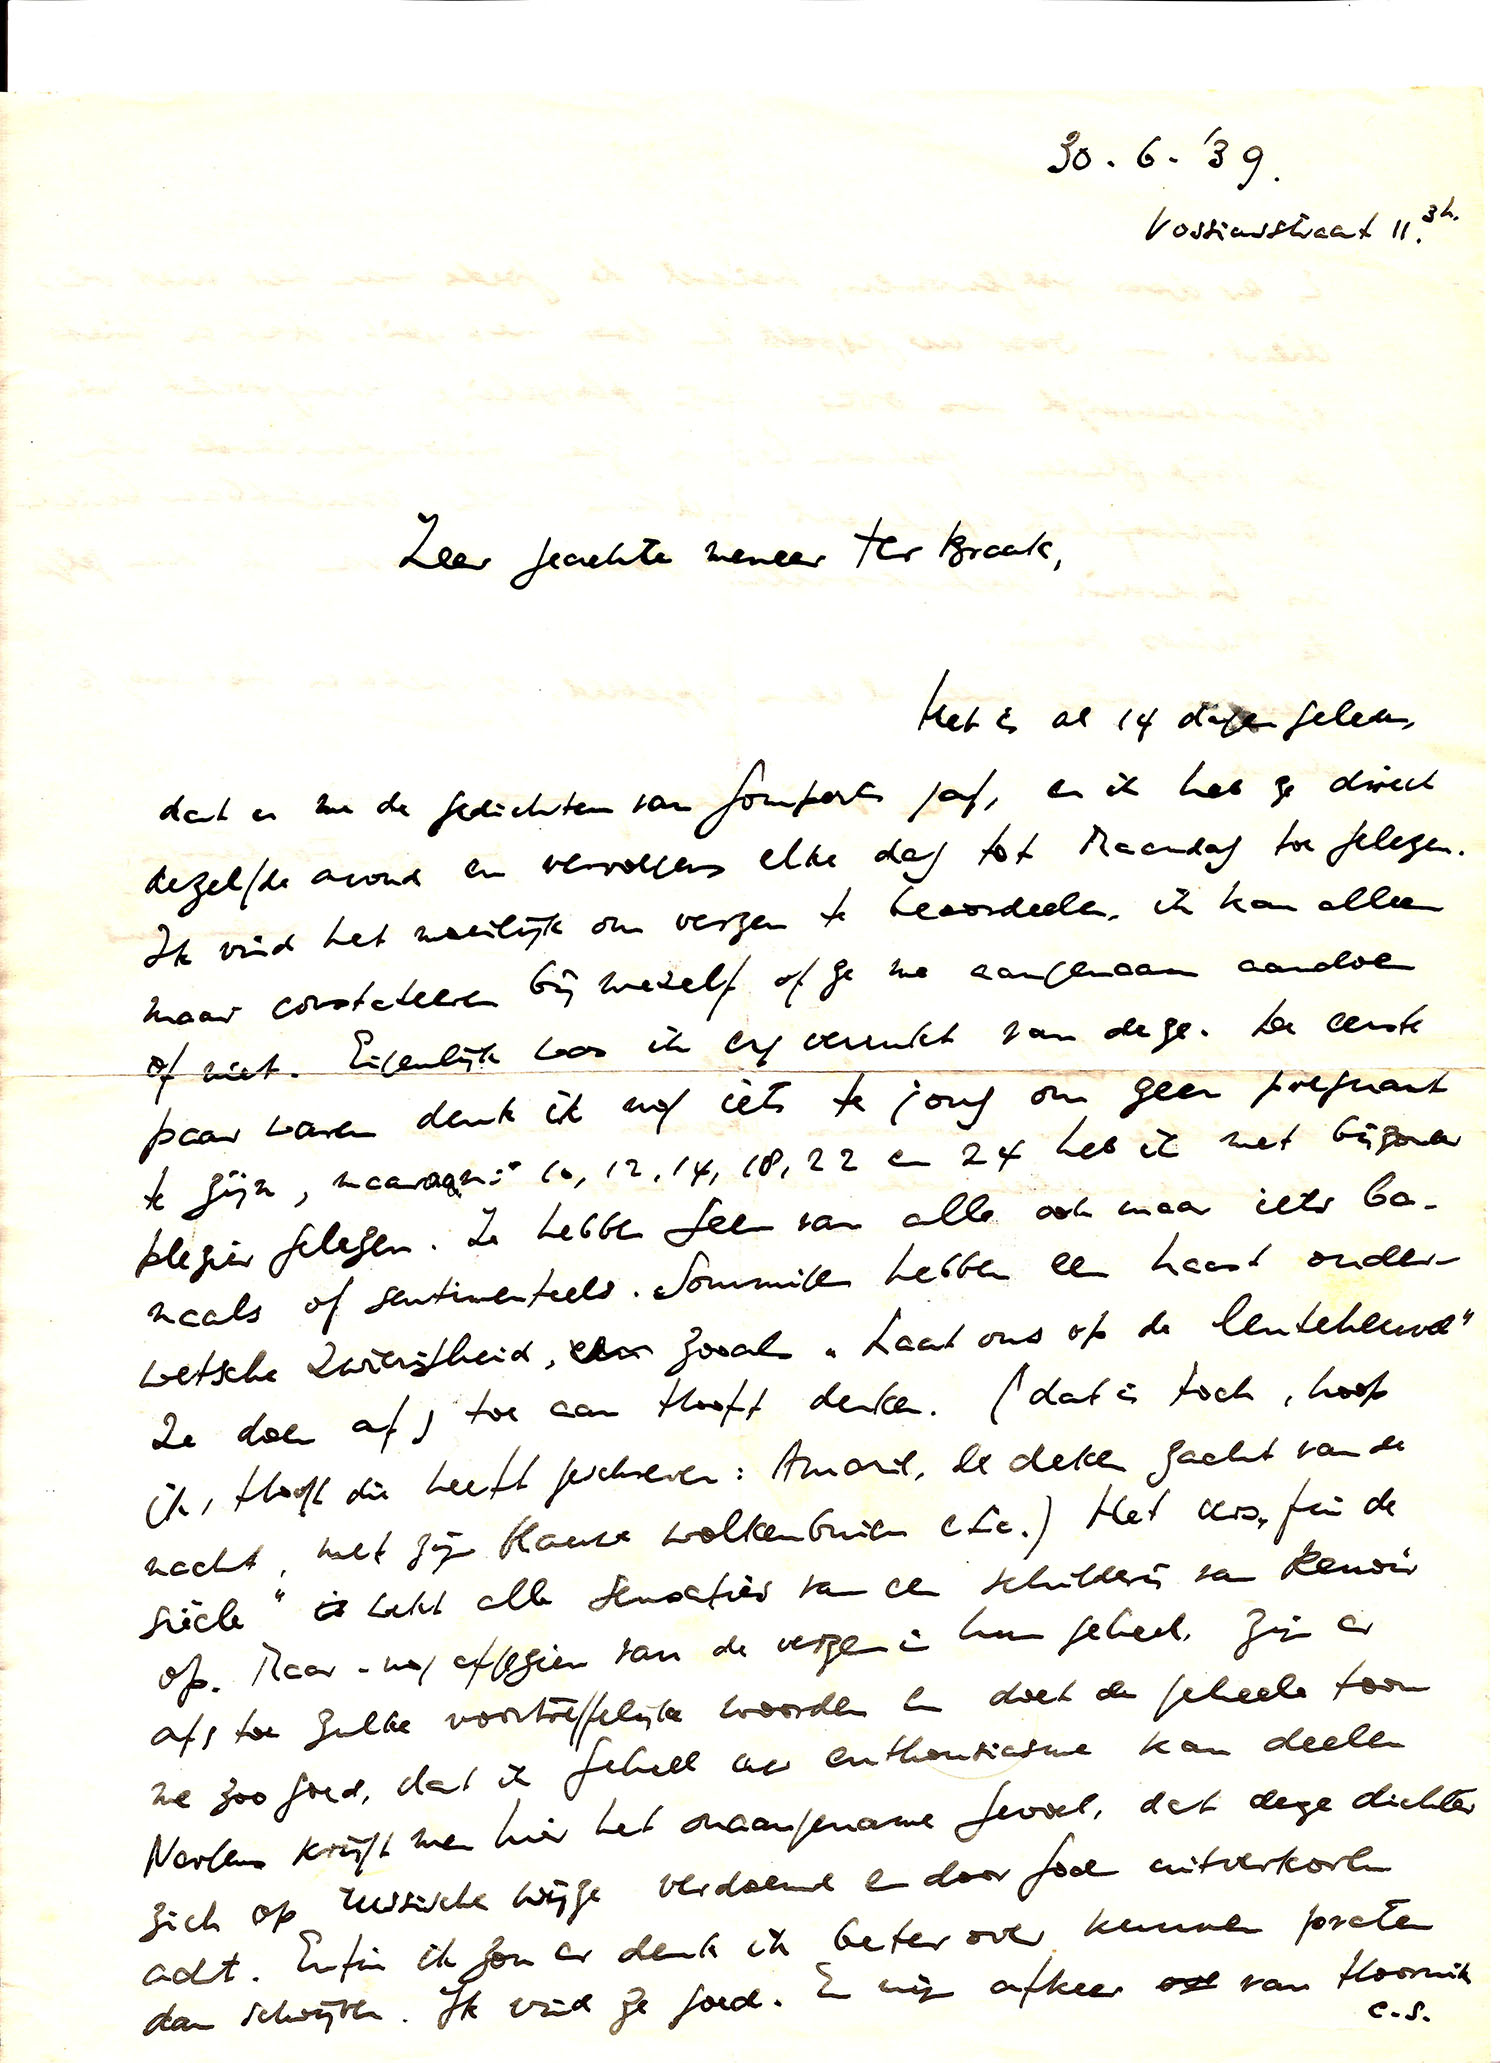 30.6.'39.
Vossiusstraat 11. 3h.
Zeer geachte meneer ter Braak,
Het is al 14 dagen geleden,
dat u me de gedichten van Gomperts gaf, en ik heb ze direct
dezelfde avond en vervolgens elke dag tot Maandag toe gelezen.
Ik vind het moeilijk om verzen te beoordeelen, ik kan alleen
maar constateeren bij mezelf of ze me aangenaam aandoen
of niet. Eigenlijk was ik erg verrukt van deze. De eerste
paar waren denk ik nog iets te jong om zeer pregnant
te zijn, maar no: 10, 12, 14, 18, 22 en 24 heb ik met bijzonder
plezier gelezen. Ze hebben geen van alle ook maar iets ba-
naals of sentimenteels. Sommige hebben een haast ouder-
wetsche zwierigheid, zooals „Laat ons op de lenteheuvel"
Ze doen af & toe aan Hooft denken. (dat is toch, hoop
ik, Hooft die heeft geschreven: Amaril, de deken zacht van de
nacht, met zijn blauwe wolkenbuien etc.) Het vers „fin de
siècle" wekt alle sensaties van een schilderij van Renoir
op. Maar - nog afgezien van de verzen in hun geheel, zijn er
af & toe zulke voortreffelijke woorden en doet de geheele toon
me zoo goed, dat ik geheel uw enthousiasme kan deelen
Nergens krijgt men hier het onaangename gevoel, dat deze dichter
zich op russische wijze verdoemd en door God uitverkoren
acht. Enfin ik zou er denk ik beter over kunnen praten
dan schrijven. Ik vind ze goed. En mijn afkeer van Hoornik
c.s.